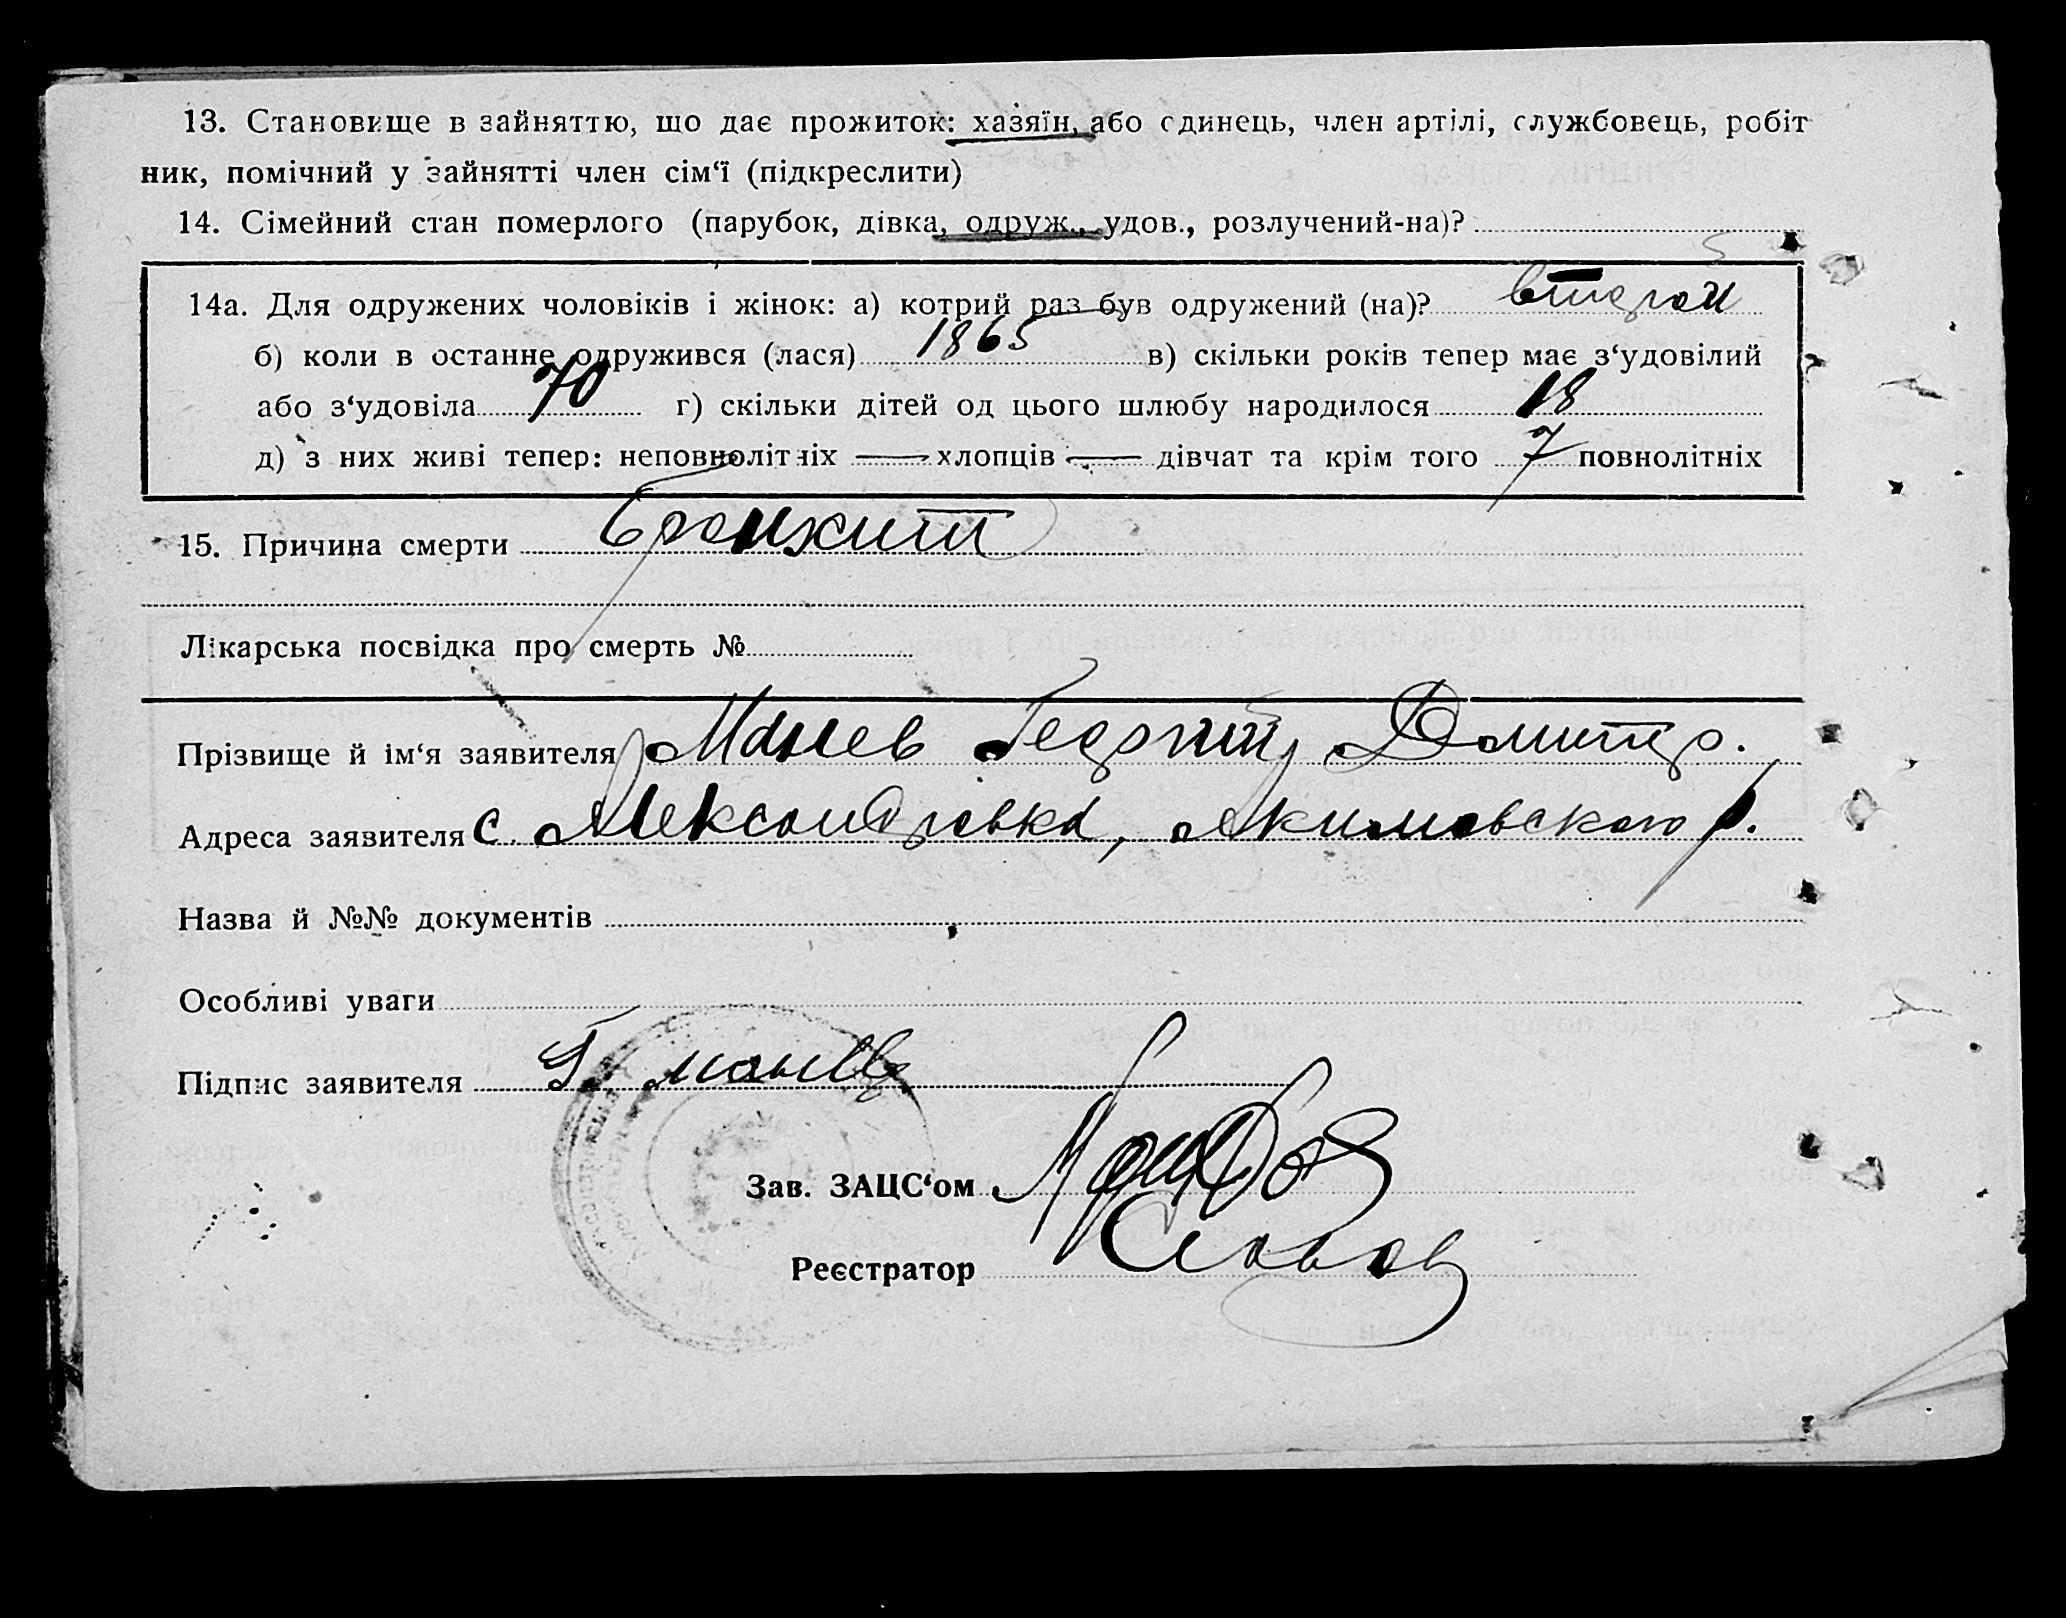 13. Становище в зайняттю, що дає прожиток: хазяїн, або єдинець, член артілі, службовець, робіт
ник, помічний у зайнятті член сім‘ї (підкреслити)
14. Сімейний стан померлого (парубок, дівка, одруж., удов., розлучений-на)?
14а. Для одружених чоловіків і жінок: а) котрий раз був одружений (на)? второй
б) коли в останнє одружився (лася) 1865 в) скільки років тепер має з‘удовілий
або з‘удовіла 70 г) скільки дітей од цього шлюбу народилося 18
д) з них живі тепер: неповнолітніх — хлопців — дівчат та крім того 7 повнолітніх
15. Причина смерти бронхит
Лікарська посвідка про смерть №
Прізвище й ім‘я заявителя Манев Георгий Дмитр.
Адреса заявителя с. Александровка, Акимовского р.
Назва й №№ документів
Особливі уваги
Підпис заявителя Г. Манев
Зав. ЗАЦС‘ом
Реєстратор